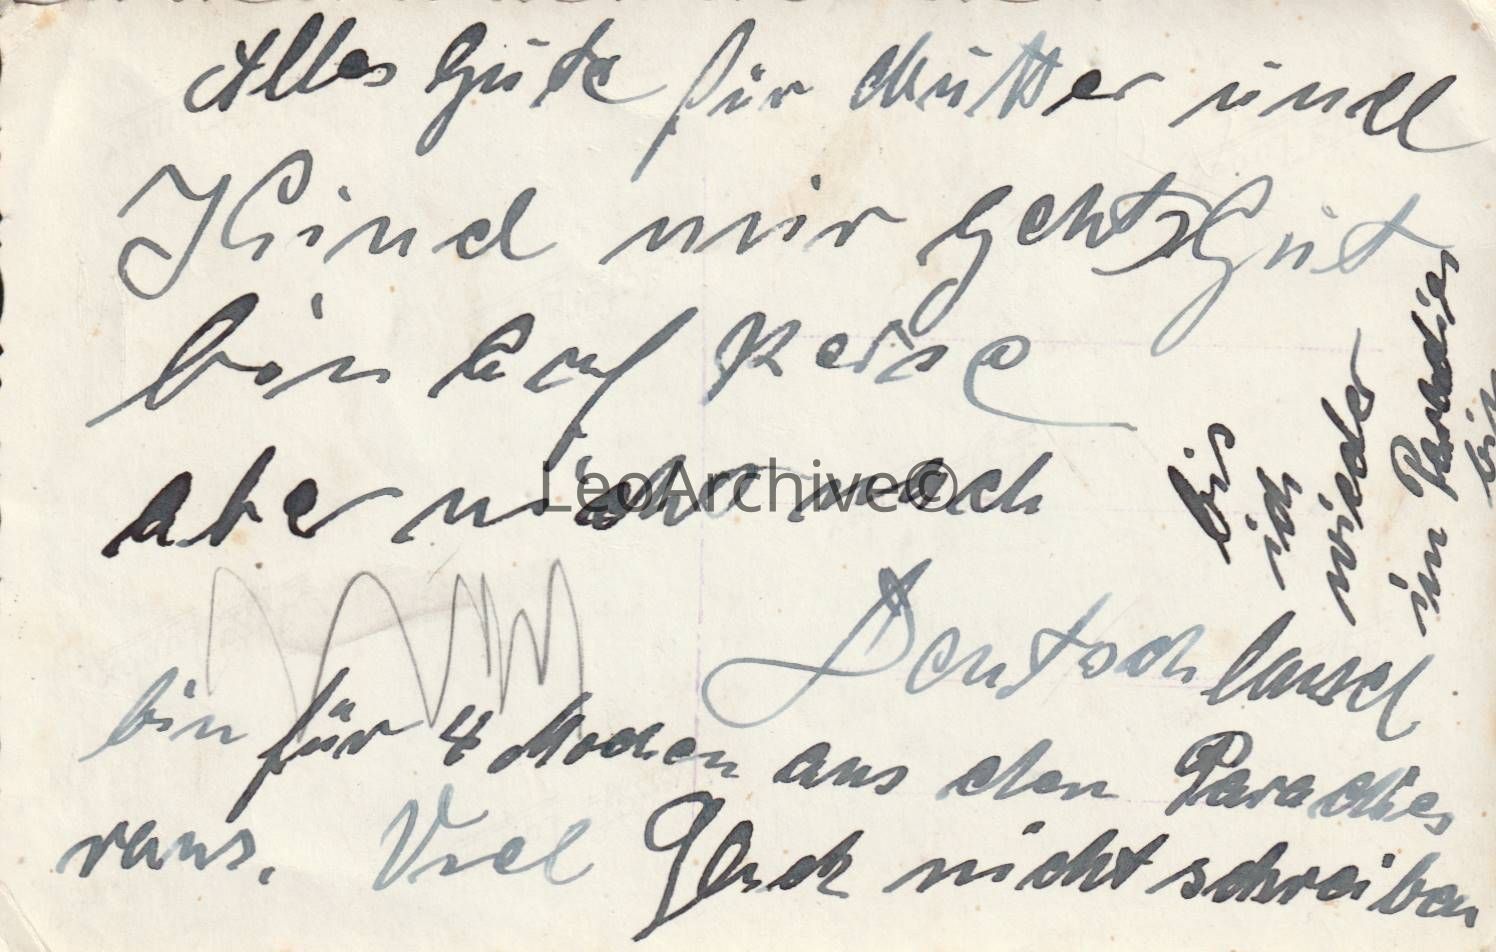 Alles Gute für Mutter und
Kind mir gehts Gut
bin auf Reise
aber nicht nach
Deutschland
bin für 4 Wochen aus den Paradies
raus. Viel Glück nicht schreiben
bis
ich
wieder
im Paradies
bin
LeoArchive©